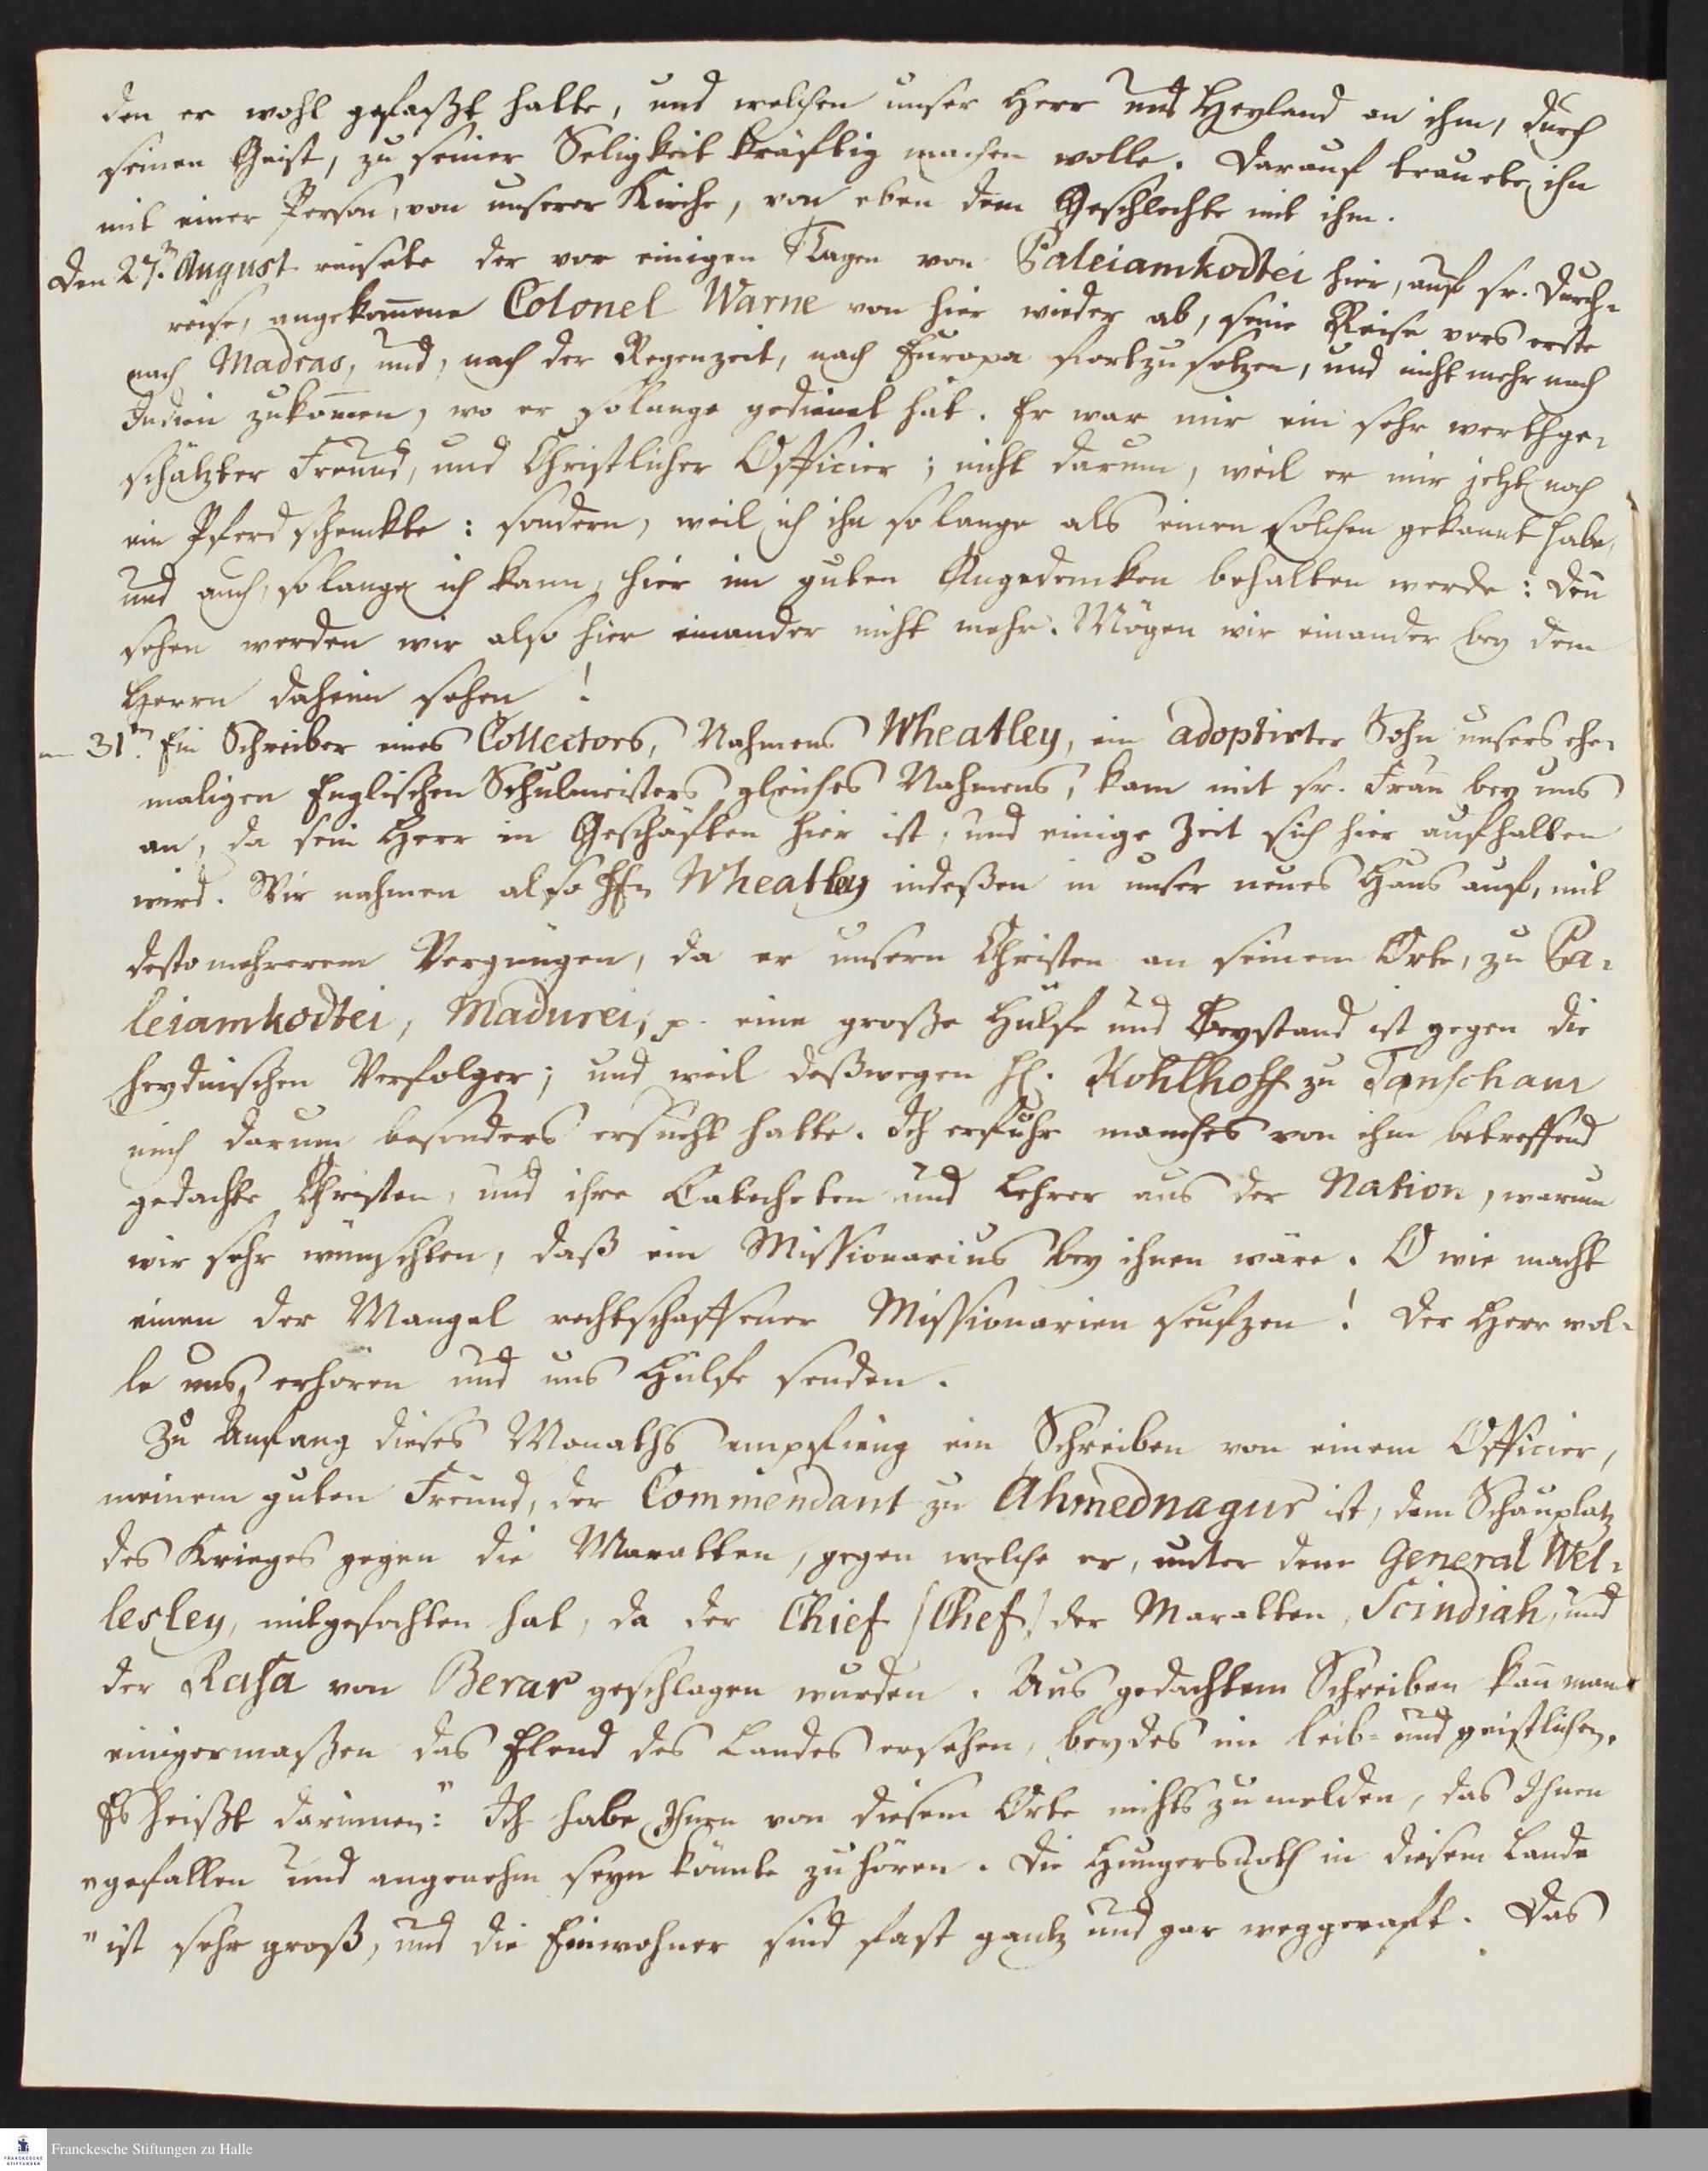 den er wohl gefaßt hatte, und welchen unser Herr und Heyland an ihm, durch
seinen Geist, zu seiner Seligkeit kräftig machen wolle. Darauf trauete ihn
mit einer Person, von unserer Kirche, von eben dem Geschlechte mit ihm.
Den 27.n August reisete der vor einigen Tagen von Paleiamkodtei hier, auf sr. Durch-
reise, angekom̄ene Colonel Warne von hier wieder ab, seine Reise vors erste
nach Madras, und, nach der Regenzeit, nach Europa fortzusetzen, und nicht mehr nach
Indien zukom̄en, wo er solange gedienet hat. Er war mir ein sehr werthge-
schätzter Freund, und Christlicher Officier; nicht darum, weil er mir jetzt noch
ein Pferd schenckte: sondern, weil ich ihn so lange als einen solchen gekannt habe,
und auch, so lange ich kann, hier im guten Angedencken behalten werde: den̄
sehen werden wir also hier einander nicht mehr. Mögen wir einander bey dem
Herrn daheim sehen!
— 31.n Ein Schreiber eines Collectors, Nahmens Wheatley, ein adoptirter Sohn unsers ehe-
maligen Englischen Schulmeisters gleiches Nahmens, kam mit sr. Frau bey uns
an, da sein Herr in Geschäften hier ist, und einige Zeit sich hier aufhalten
wird. Wir nahmen also Hrn Wheatley indeßen in unser neues Haus auf, mit
desto mehrerem Vergnügen, da er unsern Christen an seinem Orte, zu Pa-
leiamkodtei, Madurei, p. eine große Hülfe und Beystand ist gegen die
heydnischen Verfolger; und weil deßwegen H. Kohlhoff zu Tanschaur
mich darum besonders ersucht hatte. Ich erfuhr manches von ihm betreffend
gedachte Christen, und ihre Catecheten und Lehrer aus der Nation, warum
wir sehr wünschten, daß ein Missionarius bey ihnen wäre. O wie macht
einen der Mangel rechtschaffener Missionarien seufzen! Der Herr wol-
le uns erhören und uns Hülfe senden.
Zu Anfang dieses Monaths empfieng ein Schreiben von einem Officier,
meinem guten Freund, der Commendant zu Ahmednagur ist, dem Schauplatz
des Krieges gegen die Maratten, gegen welche er, unter dem General Wel-
lesley, mitgefochten hat, da der Chief [Chef] der Maratten, Scindiah, und
der Rasa von Berar geschlagen wurden. Aus gedachtem Schreiben kan̄ man
einigermaßen das Elend des Landes ersehen, beydes im leib- und geistlichen.
Es heißt darinnen: "Ich habe Ihnen von diesem Orte nichts zu melden, das Ihnen
"gefallen und angenehm seyn könnte zu hören. Die Hungersnoth in diesem Lande
"ist sehr groß, und die Einwohner sind fast gantz und gar weggeraft. Das
Franckesche Stiftungen zu Halle